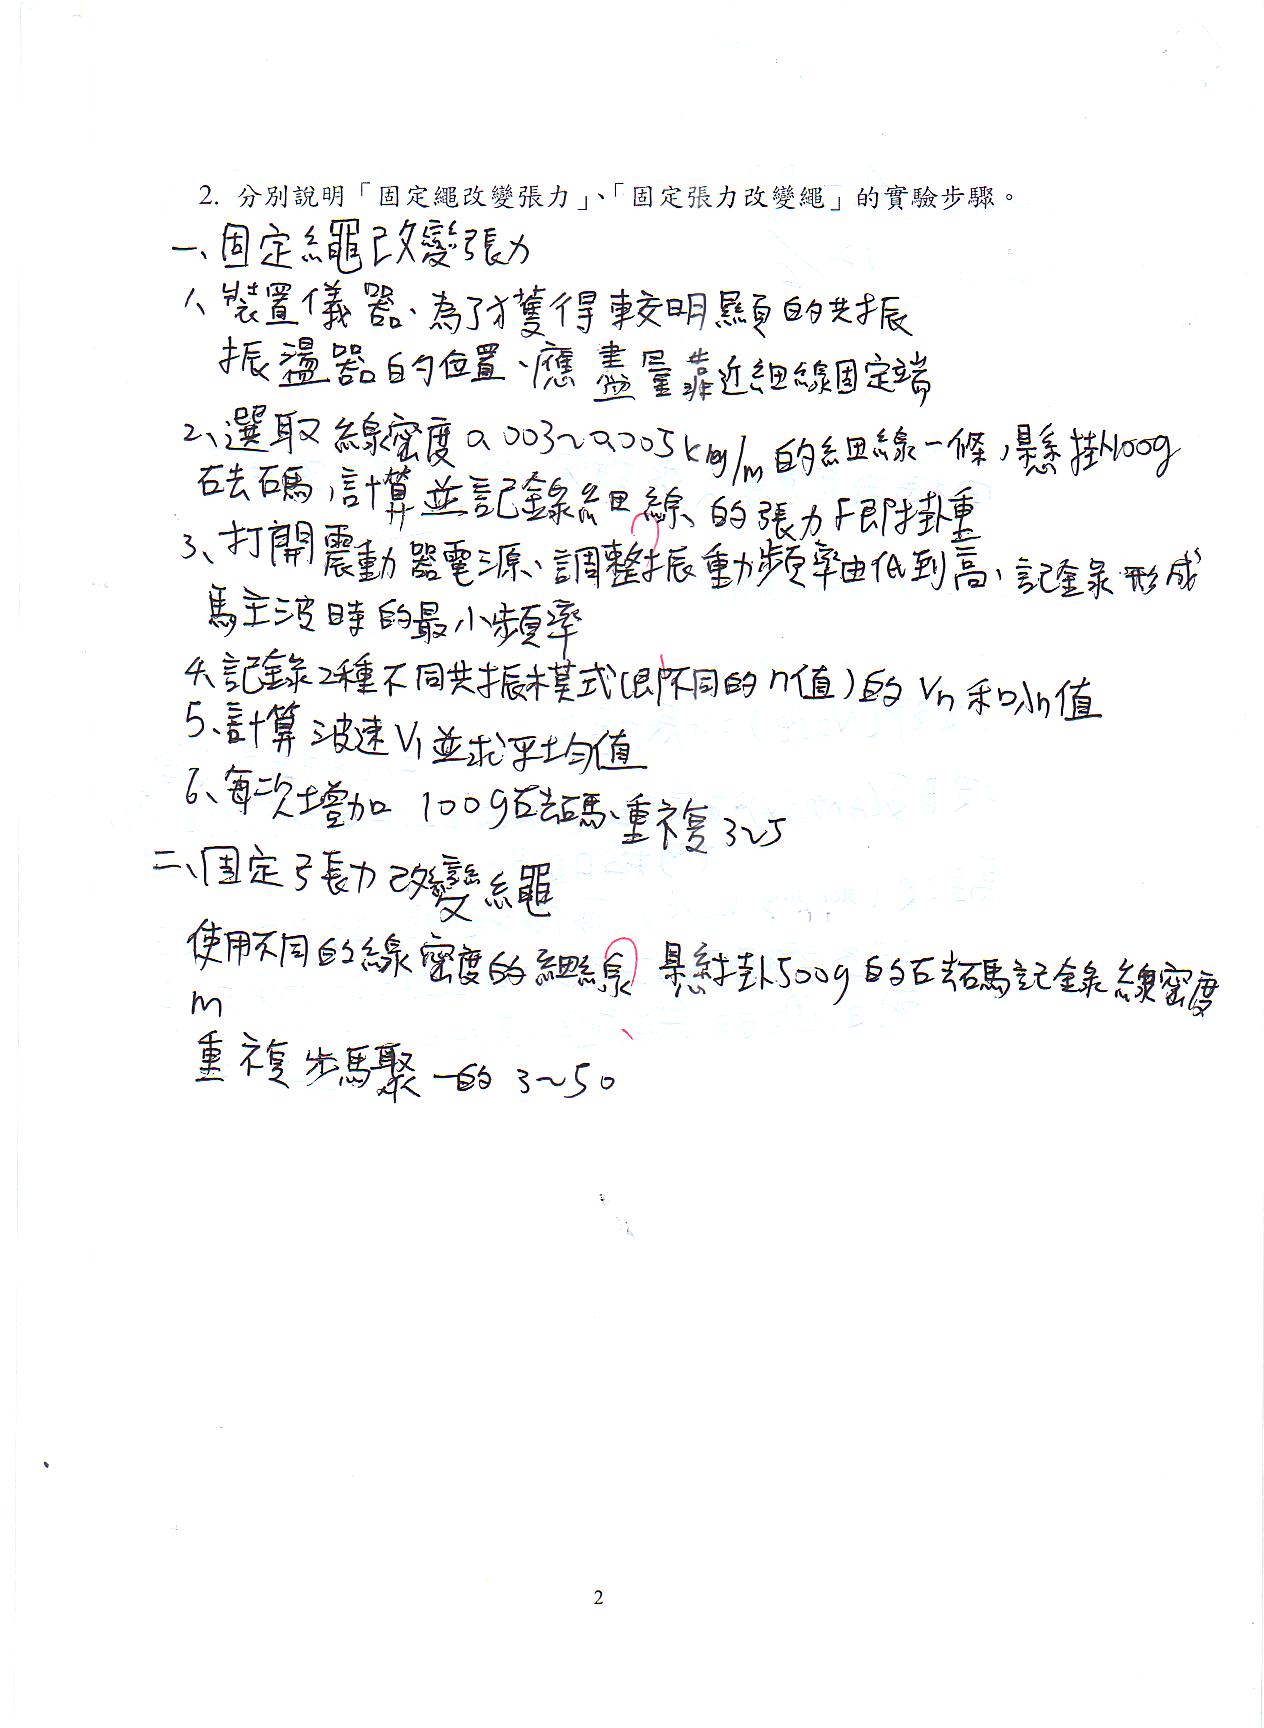 2. 分別說明「固定繩改變張力」、「固定張力改變繩」的實驗步驟。
一、固定繩改變張力
1、裝置儀器、為了獲得較明顯的共振
振盪器的位置、應盡量靠近細線固定端
2、選取線密度0.003~0.005kg/m的細線一條，懸掛100g
砝碼，計算並記錄細線、的張力F即掛重
3、打開震動器電源、調整振動頻率由低到高、記錄形成
駐波時的最小頻率
4、記錄2種不同共振模式(即不同的n值)的Vn和λn值
5、計算波速V，並求平均值
6、每次增加100g砝碼、重複3~5
二、固定張力改變繩
使用不同的線密度的細線 懸掛500g的砝碼記錄線密度
m
重複步驟一的3~5。
2